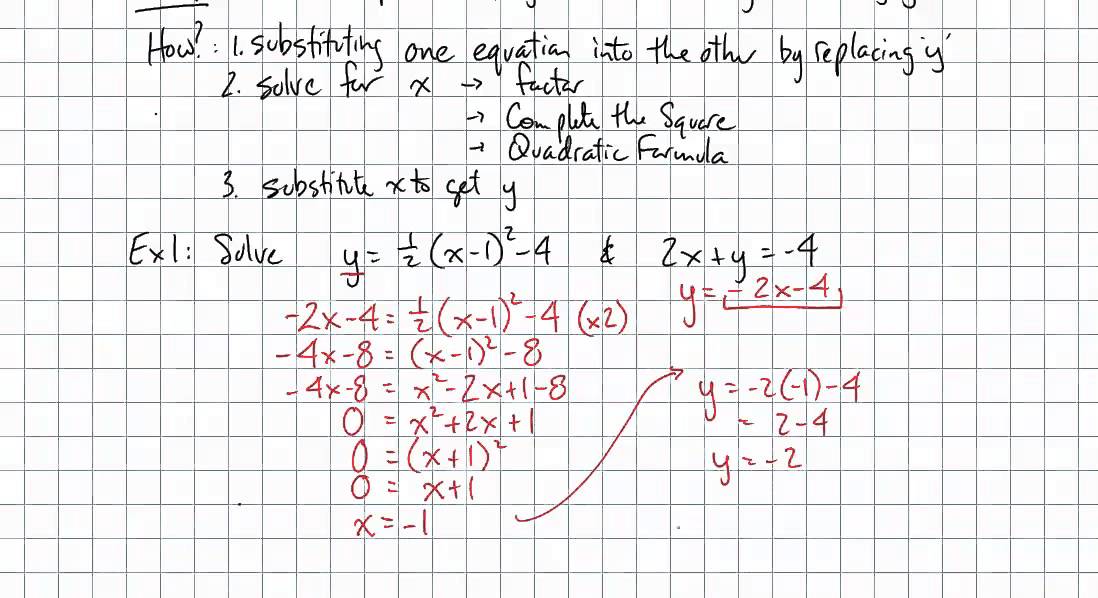 How? : 1. substituting one equation into the other by replacing 'y'
2. solve for x → factor
→ Complete the Square
→ Quadratic Formula
3. substitute x to get y
Ex1: Solve y = ½(x-1)² - 4 & 2x + y = -4
y = -2x - 4
-2x - 4 = ½(x-1)² - 4 (x2)
-4x - 8 = (x-1)² - 8
-4x - 8 = x² - 2x + 1 - 8
0 = x² + 2x + 1
0 = (x+1)²
0 = x+1
x = -1
y = -2(-1) - 4
= 2 - 4
y = -2